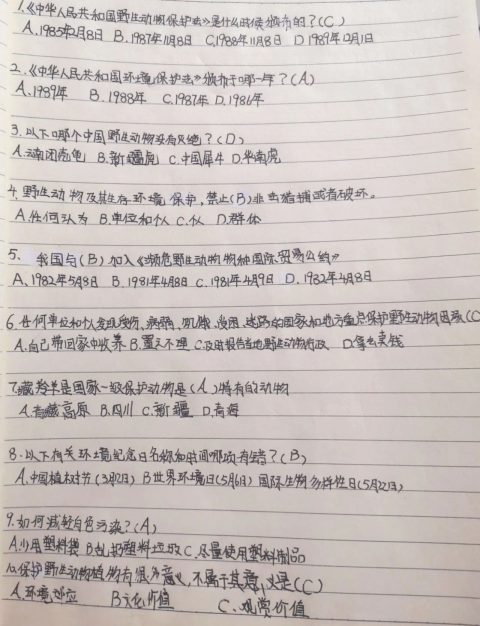 1.《中华人民共和国野生动物保护法》是什么时候颁布的？(C)
A.1985年2月8日 B.1987年11月8日 C.1988年11月8日 D 1989年12月1日
2.《中华人民共和国环境保护法》颁布于哪一年？(A)
A.1989年 B.1988年 C.1987年 D.1986年
3.以下哪个中国野生动物没有灭绝？(D)
A.云南闭壳龟 B.新疆虎 C.中国犀牛 D.华南虎
4.野生动物及其生存环境保护,禁止(B)非法猎捕或者破坏。
A.任何认为 B.单位和个人 C.个人 D.群体
5、我国与(B)加入《濒危野生动物物种国际贸易公约》
A、1982年5月8日 B.1981年4月8日 C.1981年4月9日 D.1982年4月8日
6.任何单位和个人发现受伤、病弱、饥饿、受困、迷路的国家和地方重点保护野生动物因承(C
A.自己带回家中收养 B.置之不理 C.及时报告当地野生动物行政 D.拿去卖钱
7.藏羚羊是国家一级保护动物是(A)特有的动物
A.青藏高原 B.四川 C.新疆 D.青海
8.以下有关环境纪念日名称和时间哪项有错？(B)
A.中国植树节(3月12日) B 世界环境日(5月6日) 国际生物多样性日(5月22日)
9.如何减轻白色污染？(A)
A.少用塑料袋 B.乱扔塑料垃圾 C.尽量使用塑料制品
10.保护野生动物植物有很多意义,不属于其意义是(C)
A.环境效应 B文化价值 C.观赏价值